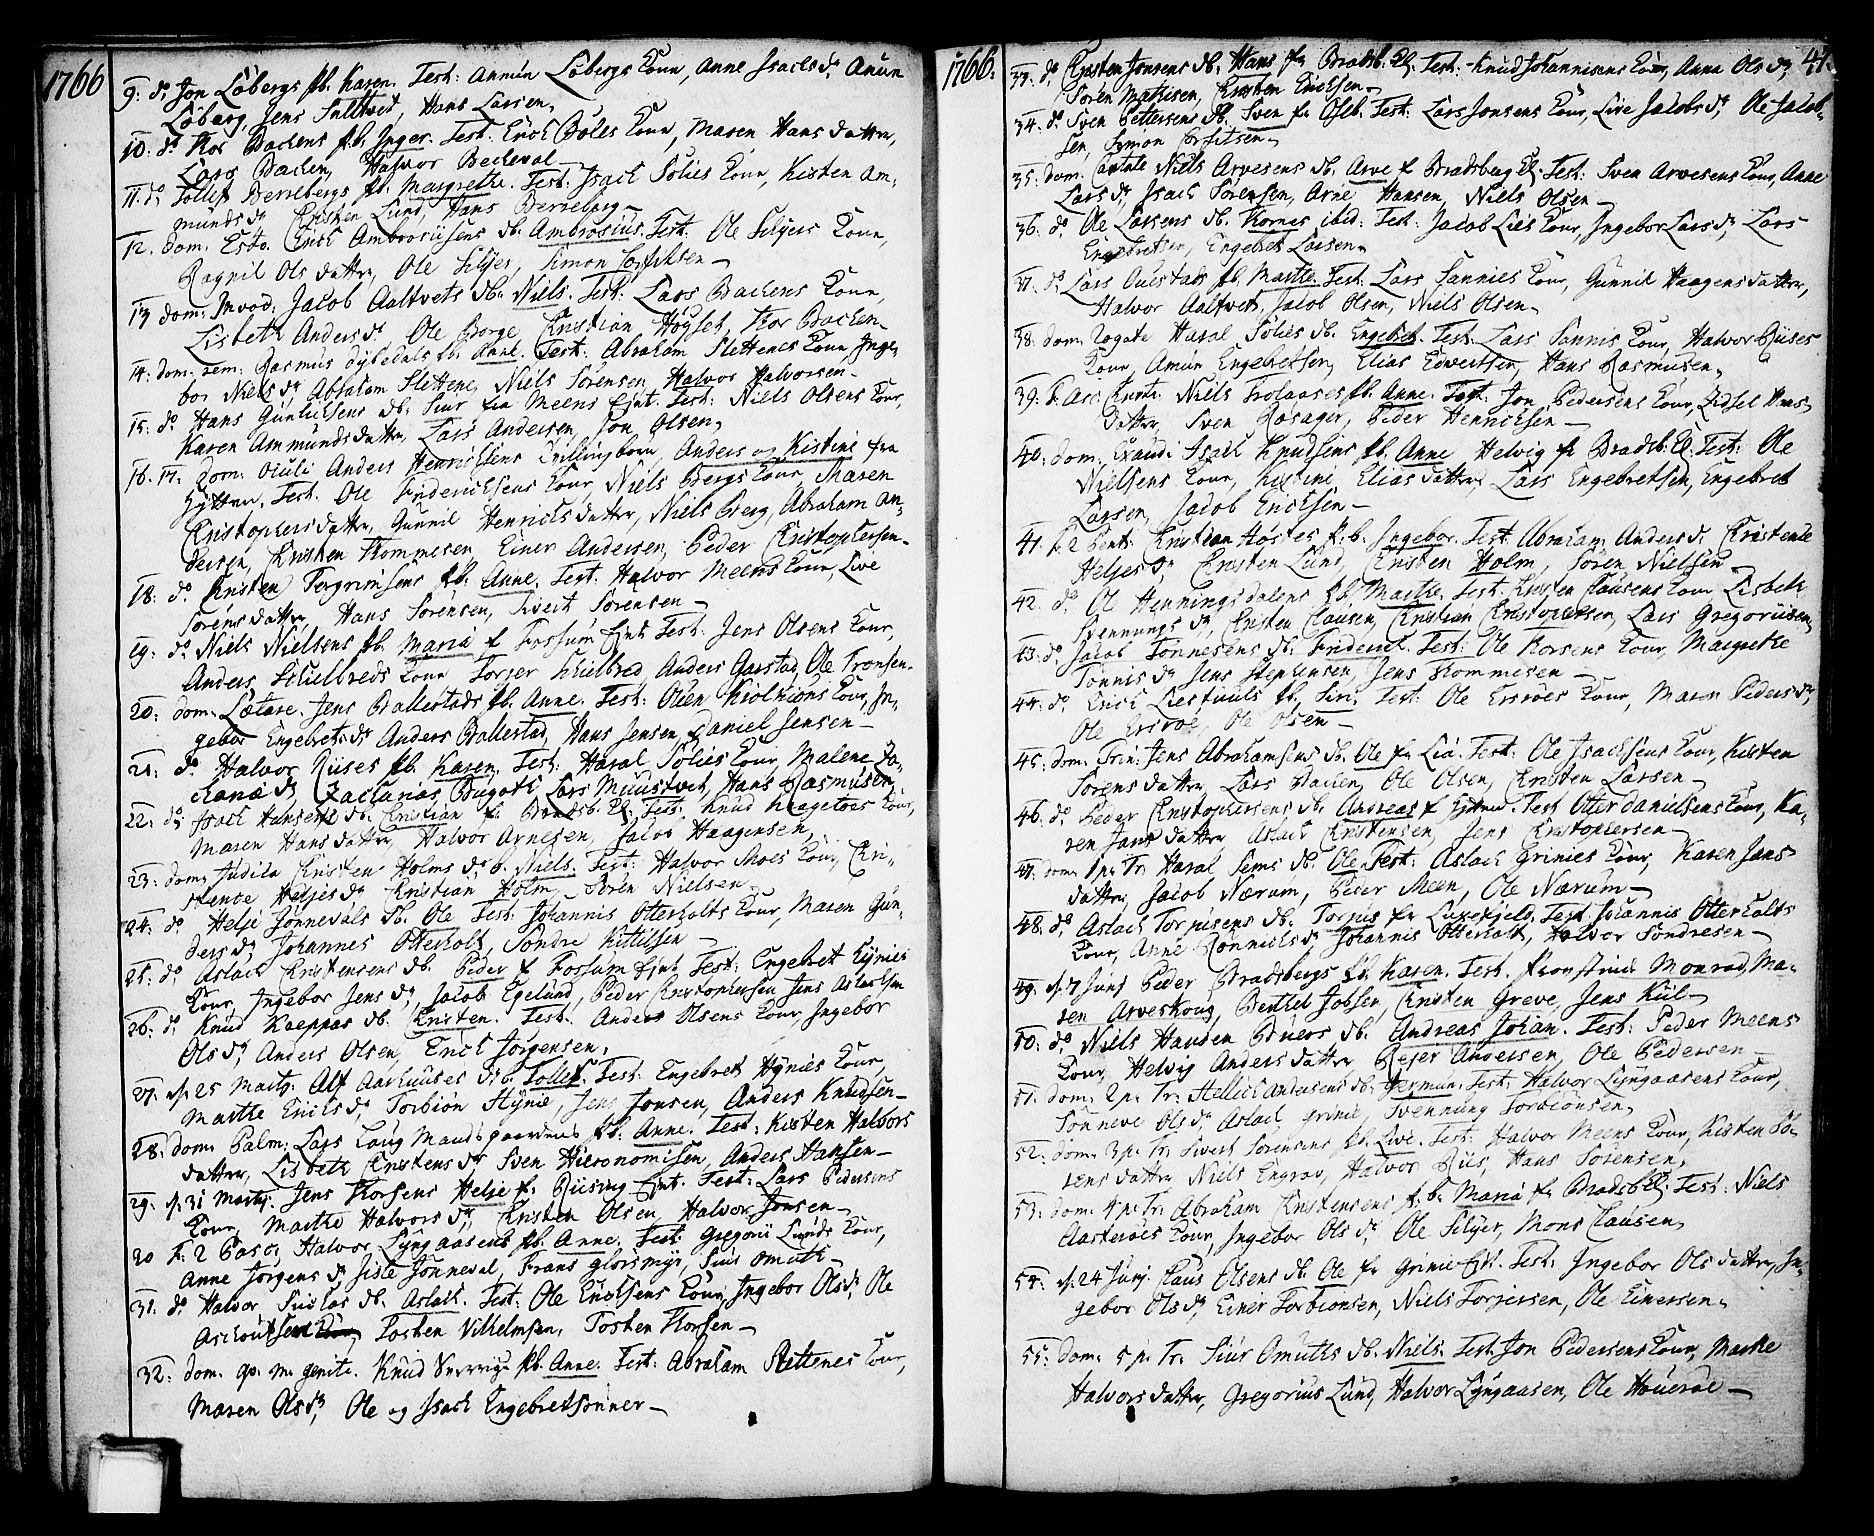 1766
9: d. Jon Löbergs pb. Karen. Test: Anmun Löbergs Kone, Anne Isachsd. Anun
Löberg, Jens Hans Larsen,
10: d. Thor Bachens pb. Inger. Test: Erich Böles Kone, Maren Hans datter,
Lars Bachen, Halvor Becheval
11: d. Tollef Berrebergs pb. Margrethe. Test: Isach Solies Kone, Kisten Am-
munds dr. Christen Lund, Hans Berreberg
12. dom. Esto. Erich Ambrorsiisens db: Ambrosius. Test: Ole Siljers Kone,
Ragnil Ols datter, Ole Siljer, Simon
13 dom: Invoc: Jacob Aaltvets db: Niels. Test: Lars Bachens Kone,
Lisbeth Andersd. Ole Borge Christian Höyset, Thor Bachen
14: dom: rem: Rasmus Dybedals pb. Anne. Test: Abraham Slettenes Kone, Inge-
bor Niels dr. Abraham Slettene, Niels Sörensen, Halvor Halvorsen
15: d. Hans Gunlichsens db: Siur fra Meens Ejet. Test: Niels Olsens Kone,
Karen Ammundsdatter, Lars Andersen, Jon Olsen,
16. 17: dom: Oculi Anders Henrichsens Tvillingbörn, Anders og Kistine fra
Hytten. Test: Ole Friderichsens Kone, Niels Bergs Kone, Maren
Christophersdatter, Gunnil Henrichsdatter, Niels Berg, Abraham An-
dersen, Christen Thommesen, Einer Andersen, Peder Christophersen
18: d. Christen Torgrimsens pb. Anne. Test: Halvor Meens Kone, Live
Sörensdatter, Hans Sörensen, Sivert Sörensen
19: d. Niels Nielsens pb. Maria f. Fossum Ejet Test: Jens Olsens Kone,
Anders Schilbreds Kone Torger Schilbred, Anders Gaarstad, Ole Tronsen
20: dom. Lætare. Jens Ballestads pb. Anne. Test: Olen Kiölkions Kone, In-
gebor Engebretsdr Anders Ballestad, Hans Jensen, Daniel Jensen
21: d. Halvor Riises pb. Karen. Test: Haral Solies Kone, Malene Za-
chariæ dr. Zacharias Bugott Lars Muustvet, Hans Rasmusen,
22: d. Isach Hansens db: Christian f. Bradsb: Ej. Test: Knud Kaagetoes Kone,
Maren Hans datter, Halvor Arnesen, Jacob Haagensen,
23: dom. Judica Christen Holms d. b. Niels. Test: Halvor Moes Kone, Chri-
stence Heljes dr. Christian Holm, Sören Nielsen
24: d. Helje Jönnevals db. Ole Test: Johannis Otterholts Kone, Maren Gun-
ders dr. Johannes Otterholt, Söndre Kittilsen
25: d. Aslach Christensens db. Peder f. Fossum Ejet Test: Engebret Hynies
Kone, Ingebor Jens dr. Jacob Egelund, Peder Christophersen Jens Aslachsen
26: d. Knud Kæppas db. Christen. Test: Anders Olsens Kone, Ingebor
Ols dr. Anders Olsen, Erich Jörgensen,
27: d. 25 Martj: Alf Aarhuuses d:b. Tollef. Test: Engebret Hynies Kone,
Marthe Erichs dr. Torbiörn Hynie, Jens Jonsen, Anders Knudsen
28: dom. Palm: Lars Laug Mandsgaardens pb: Anne. Test: Kisten Halvors
datter, Lisbeth Christens dr Sven Hieronomisen, Anders Hansen
29: d. 31 Martj. Jens Thorsens Helje f. Riising Ejet: Test: Lars Pedersens
Kone, Marthe Halvorsdr. Christen Olsen Halvor Jonsen
30 F. 2 Pasc: Halvor Lyngaasens pb. Anne. Test: Gregorii Lunds Kone,
Anne Jörgens dr Siste Jönneval, Frans Glorsmyr, Siur Omuth
31: d. Halvor db. Aslach. Test: Ole Erichsens Kone, Ingebor Olsdr Ole
Tosten Vilhelmsen, Tosten Thorsen
32: dom. qv. m. genite. Knud pb. Anne. Test: Abraham Slettenes Kone,
Maren Olsdr, Ole og Isach Engebretsönner
1766.
47.
33. d. Christen Jonsens db. Hans fr. Bradsb. Ej. Test: Knud Johannisens Kone, Anna Ols dr
Sören Mathisen, Christen Erichsen
34. d. Sven Pettersens db. Sven fr. Test: Lars Jonsens Kone, Live Jacobs dr. Ole Jacob-
sen, Simon
35. dom. Cantate Niels Arvesens db. Arve f Bradsberg Ej Test: Sven Arvesens Kone, Anne
Lars dr. Isach Sörensen, Arne Hansen, Niels Olsen
36. d. Ole Larsens db. Thornes ibid: Test: Jacob Lies Kone, Ingebor Lars dr. Lars
Engebretsen, Engebret Larsen
37. d. Lars Oulstads pb. Marthe. Test: Lars Sannies Kone, Gunnil Haagens datter,
Halvor Aaltvet, Jacob Olsen, Niels Olsen
38. dom. Rogate Haral Solies db. Engebret. Test: Lars Sannis Kone, Halvor Riises
Kone, Amun Engebretsen, Elias Edvertsen, Hans Rasmusen,
39: F. Asc: Christi. Niels Trolaases pb. Anne. Test: Jon Pedersens Kone, Zidsel Hans
datter, Sven Rosager, Peder Henrichsen
40: dom: Exaudi Isach Knudsens pb. Anne Helvig fr Bradsb. Ej. Test: Ole
Nielsens Kone, Kistine Elias datter, Lars Engebretsen, Engebret
Larsen, Jacob Erichsen
41. F. 2 Pent: Christian Hösets p. b. Ingebor. Test: Abraham Anders dr. Christence
Heljes dr, Christen Lund, Christen Holm, Sören Nielsen
42: d. Ole Henningsdalens pb. Marthe. Test: Christen Clausens Kone Lisbeth
Svennungs dr, Christen Clausen, Christian Christophersen, Lars Gregoriisen,
43: d. Jacob Tönnesens db. Friderich. Test: Ole Thorsens Kone, Margrethe
Tönnis dr Jens Stephensen, Jens Thommesen
44: d. Erich Liestuuls pb. Siri. Test: Ole Ersroes Kone, Maren Peders dr,
Ole Ersroe, Ole Olsen
45: dom. Trin: Jens Abrahamsens db. Ole fr Lia. Test: Ole Isachsens Kone, Kisten
Sörens datter, Lars Bachen, Ole Olsen, Christen Larsen
46: d. Peder Christophersens db. Andreas f Hytten. Test Otter Danielsens Kone, Ka-
ren Jans datter, Aslach Christensen, Jens Christophersen
47. dom. 1 p. Tr. Haral Sems db. Ole. Test: Aslach Grinies Kone, Karen Jans
datter, Jacob Nærum, Peder Meen, Ole Nærum
48: d. Aslach Torjusens db. Torjus fr Luxefjeld. Test: Johannis Otterholts
Kone, Anne dr Johannis Otterholt, Halvor Söndresen
49: d. 7 Junj Peder Bradsbergs pb. Karen. Test. Monrad, Ma-
ren Arveskoug, Berthel Jobsen, Christen Greve, Jens Kiil
50: d: Niels Hansen Brueos db. Andreas Johan. Test: Peder Meens
Kone, Helvig Anders datter, Rejer Andersen, Ole Pedersen
51. dom. 2 p. Tr. Hellich Andersens db. Germun. Test: Halvor Lyngaasens Kone,
Sönneve Ols dr Aslach Grinie, Svennung Torbiönsen,
52: dom. 3 p. Tr Sivert Sörensens pb. Live. Test: Halvor Meens Kone, Kisten Sö-
rens datter Niels Engrav, Halvor Riis, Hans Sörensen,
53: dom. 4 p. Tr: Abraham Christensens p. b. Maria fr Bradsb Ej. Test: Niels
Aasteroes Kone, Ingebor Ols dr. Ole Siljer, Mons Clausen,
54: d. 24 Junj. Claus Olsens db. Ole fr Grinie-Ejet. Test: Ingebor Ols datter, In-
gebor Ols dr Einer Torbionsen, Niels Torjersen, Ole Einersen,
55: dom. 5 p. Tr. Siur Omuths db. Niels. Test: Jon Pedersens Kone, Marthe
Halvors datter, Gregorius Lund, Halvor Lyngaasen, Ole Houeroe